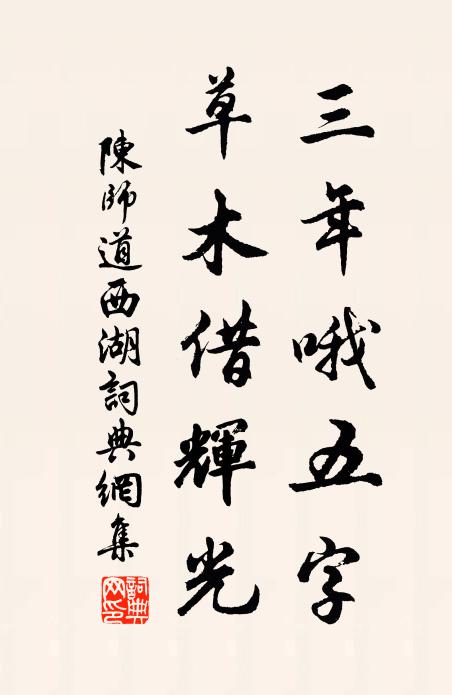 三年哦五字
草木借輝光
陳師道西湖詞典網集
詞典网印